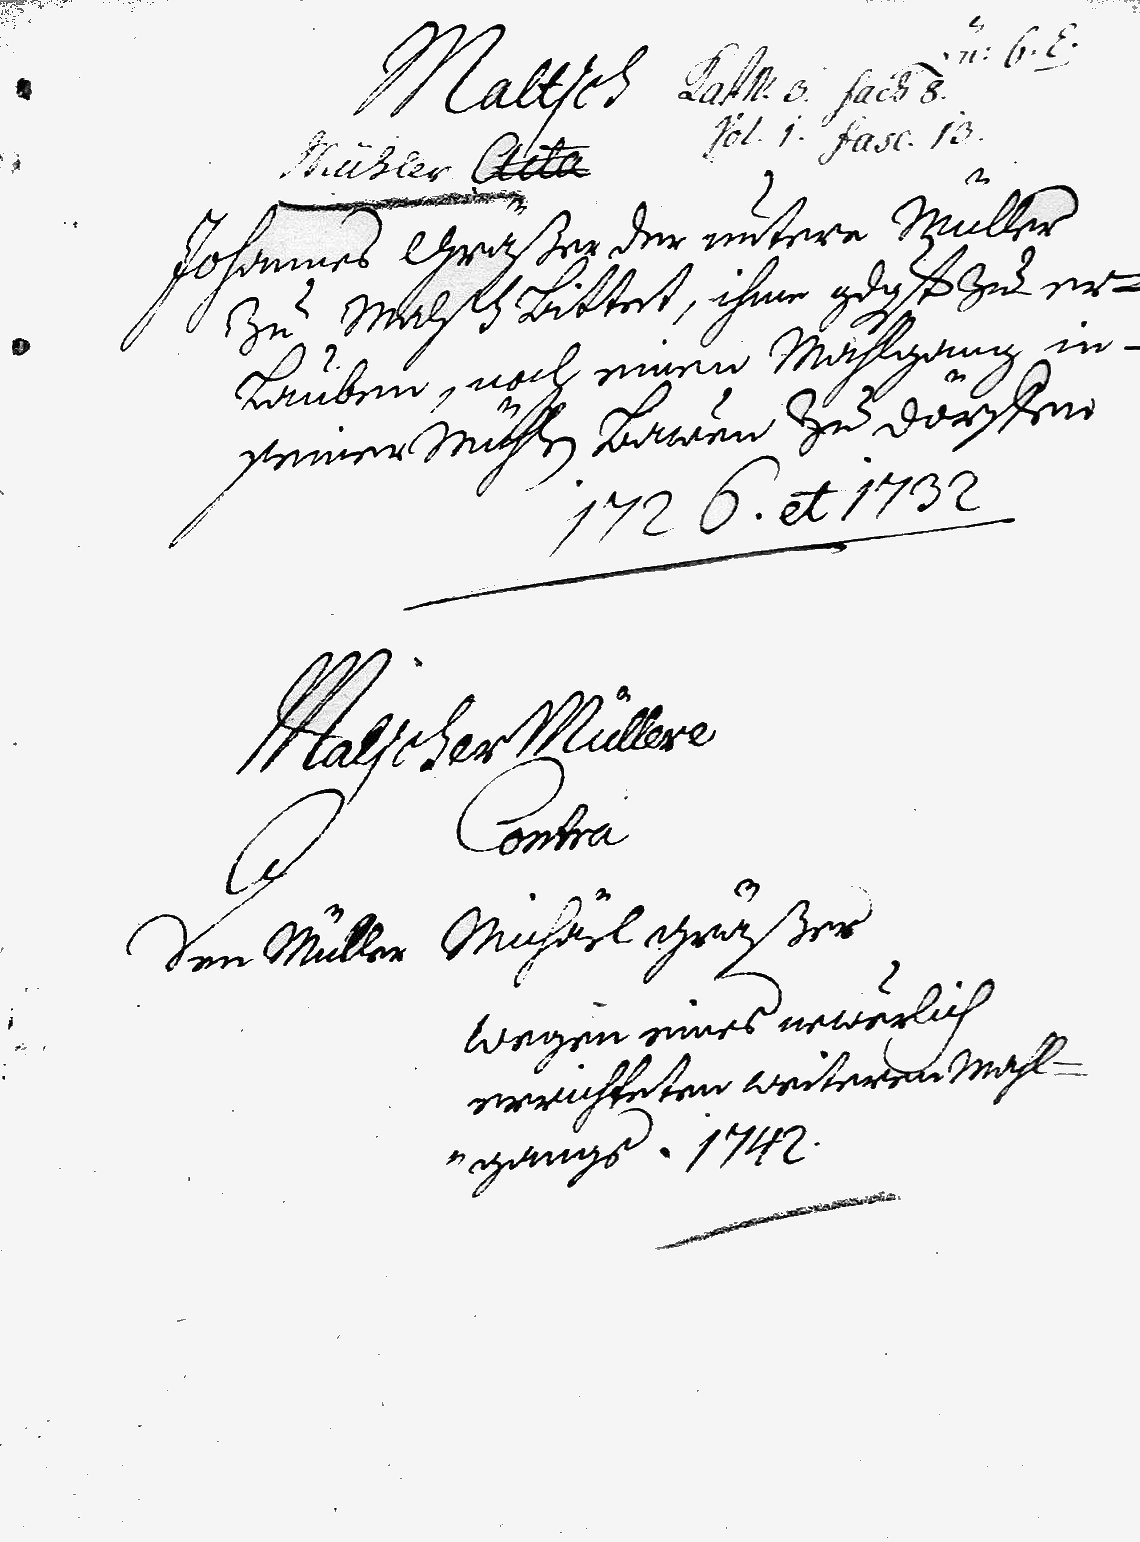 Maltsch
n: 6. E.
Kast N. 3. fach 8.
Vol. 1. fasc. 13.
Mühlen Acta
Johannes Gräßer der untere Müller
zu Malsch bittet, ihme gdgst zu er=
lauben, noch einen Mahlgang in
seiner Mühle bawen zu dörffen
1726. et 1732
Malscher Müllere
Contra
Den Müller Michäel Gräßer
wegen eines newerlich
errichteten weiteren Mahl=
"gangs. 1742.